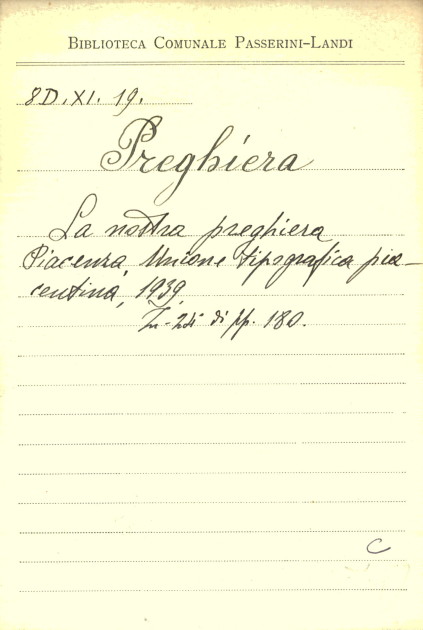 BIBLIOTECA COMUNALE PASSERINI-LANDI
8D.XI. 19.
Preghiera
La nostra preghiera
Piacenza, Unione tipografica pia-
centina, 1939.
In-24° di pp. 180.
C